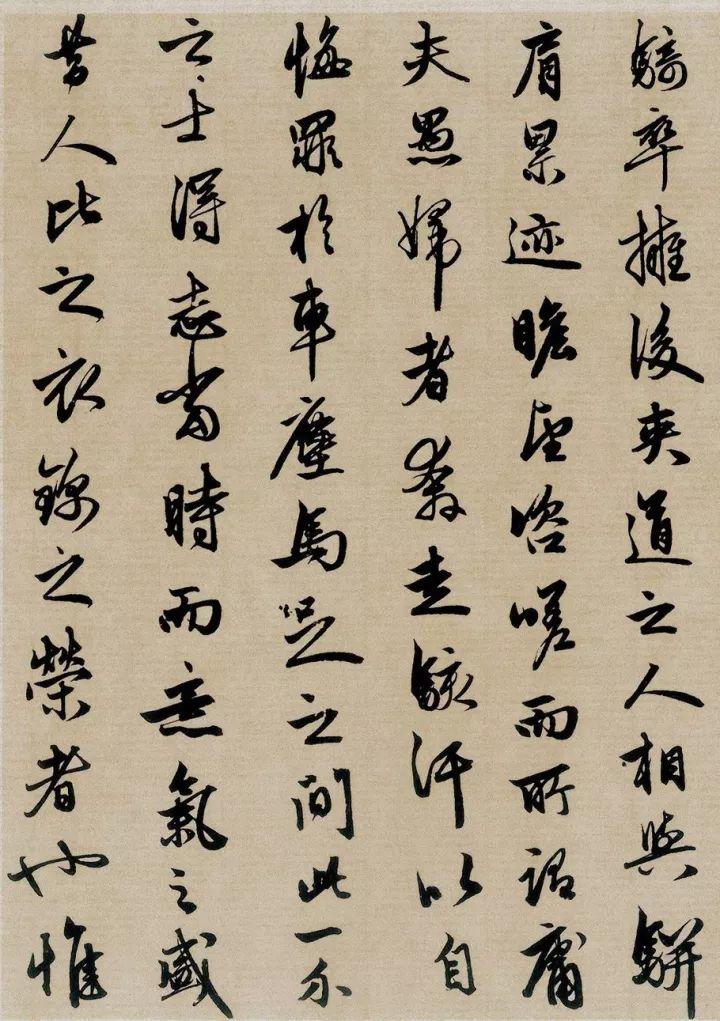 騎卒擁後夾道之人相與駢
肩累迹瞻望咨嗟而所謂庸
夫愚婦者奔走駭汗以自
悔罪於車塵馬足之間此一介
之士得志當時而意氣之盛
昔人比之衣錦之榮者也惟